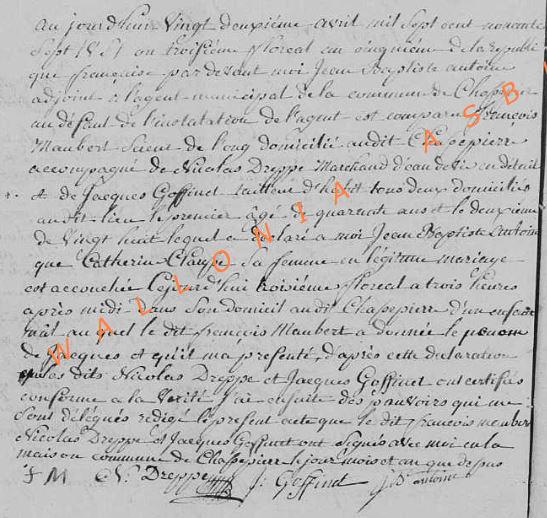 au jourd'huit vingt deuxième avril mil sept cent nonante
sept V.S. ou troisième floreal an cinqiem de la republi
que françoise par devant moi Jean Baptiste antoine
adjoint a l'agent municipal de la commune de Chassepierre
au défaut de l'instalation de l'agent est comparu françois
Maubert Sieur de long domicilié audit Chassepierre
accompagné de Nicolas Dreppe Marchand d'eau de vie en détail
et de Jacques Goffinet tailleur d'habit tous deux domiciliés
audit lieu le premier âgé de quarante ans et le deuxième
de vingt huit lequel a déclaré a moi Jean Baptiste antoine
que Catherin sa femme en légitime mariage
est accouchée Cejourd'hui troisième floreal a trois heures
après midi dans son domicil audit Chassepierre d'un enfant
mâl au quel le dit françois Maubert a donnée le prenom
de Jacques et qu'il m'a présenté, d'après cette declaration
que les dits Nicolas Dreppe et Jacques Goffinet ont certifiés
conforme a la verité j'ai ensuite des pouvoirs qui me
sont délégués redigé le présent acte que le dit françois maubert
Nicolas Dreppe et Jacques Goffinet ont signés avec moi en la
maison commune de Chassepierre le jour mois et an que depus
f M N. Dreppe J. Goffinet J B antoine
WALLONIA ASB